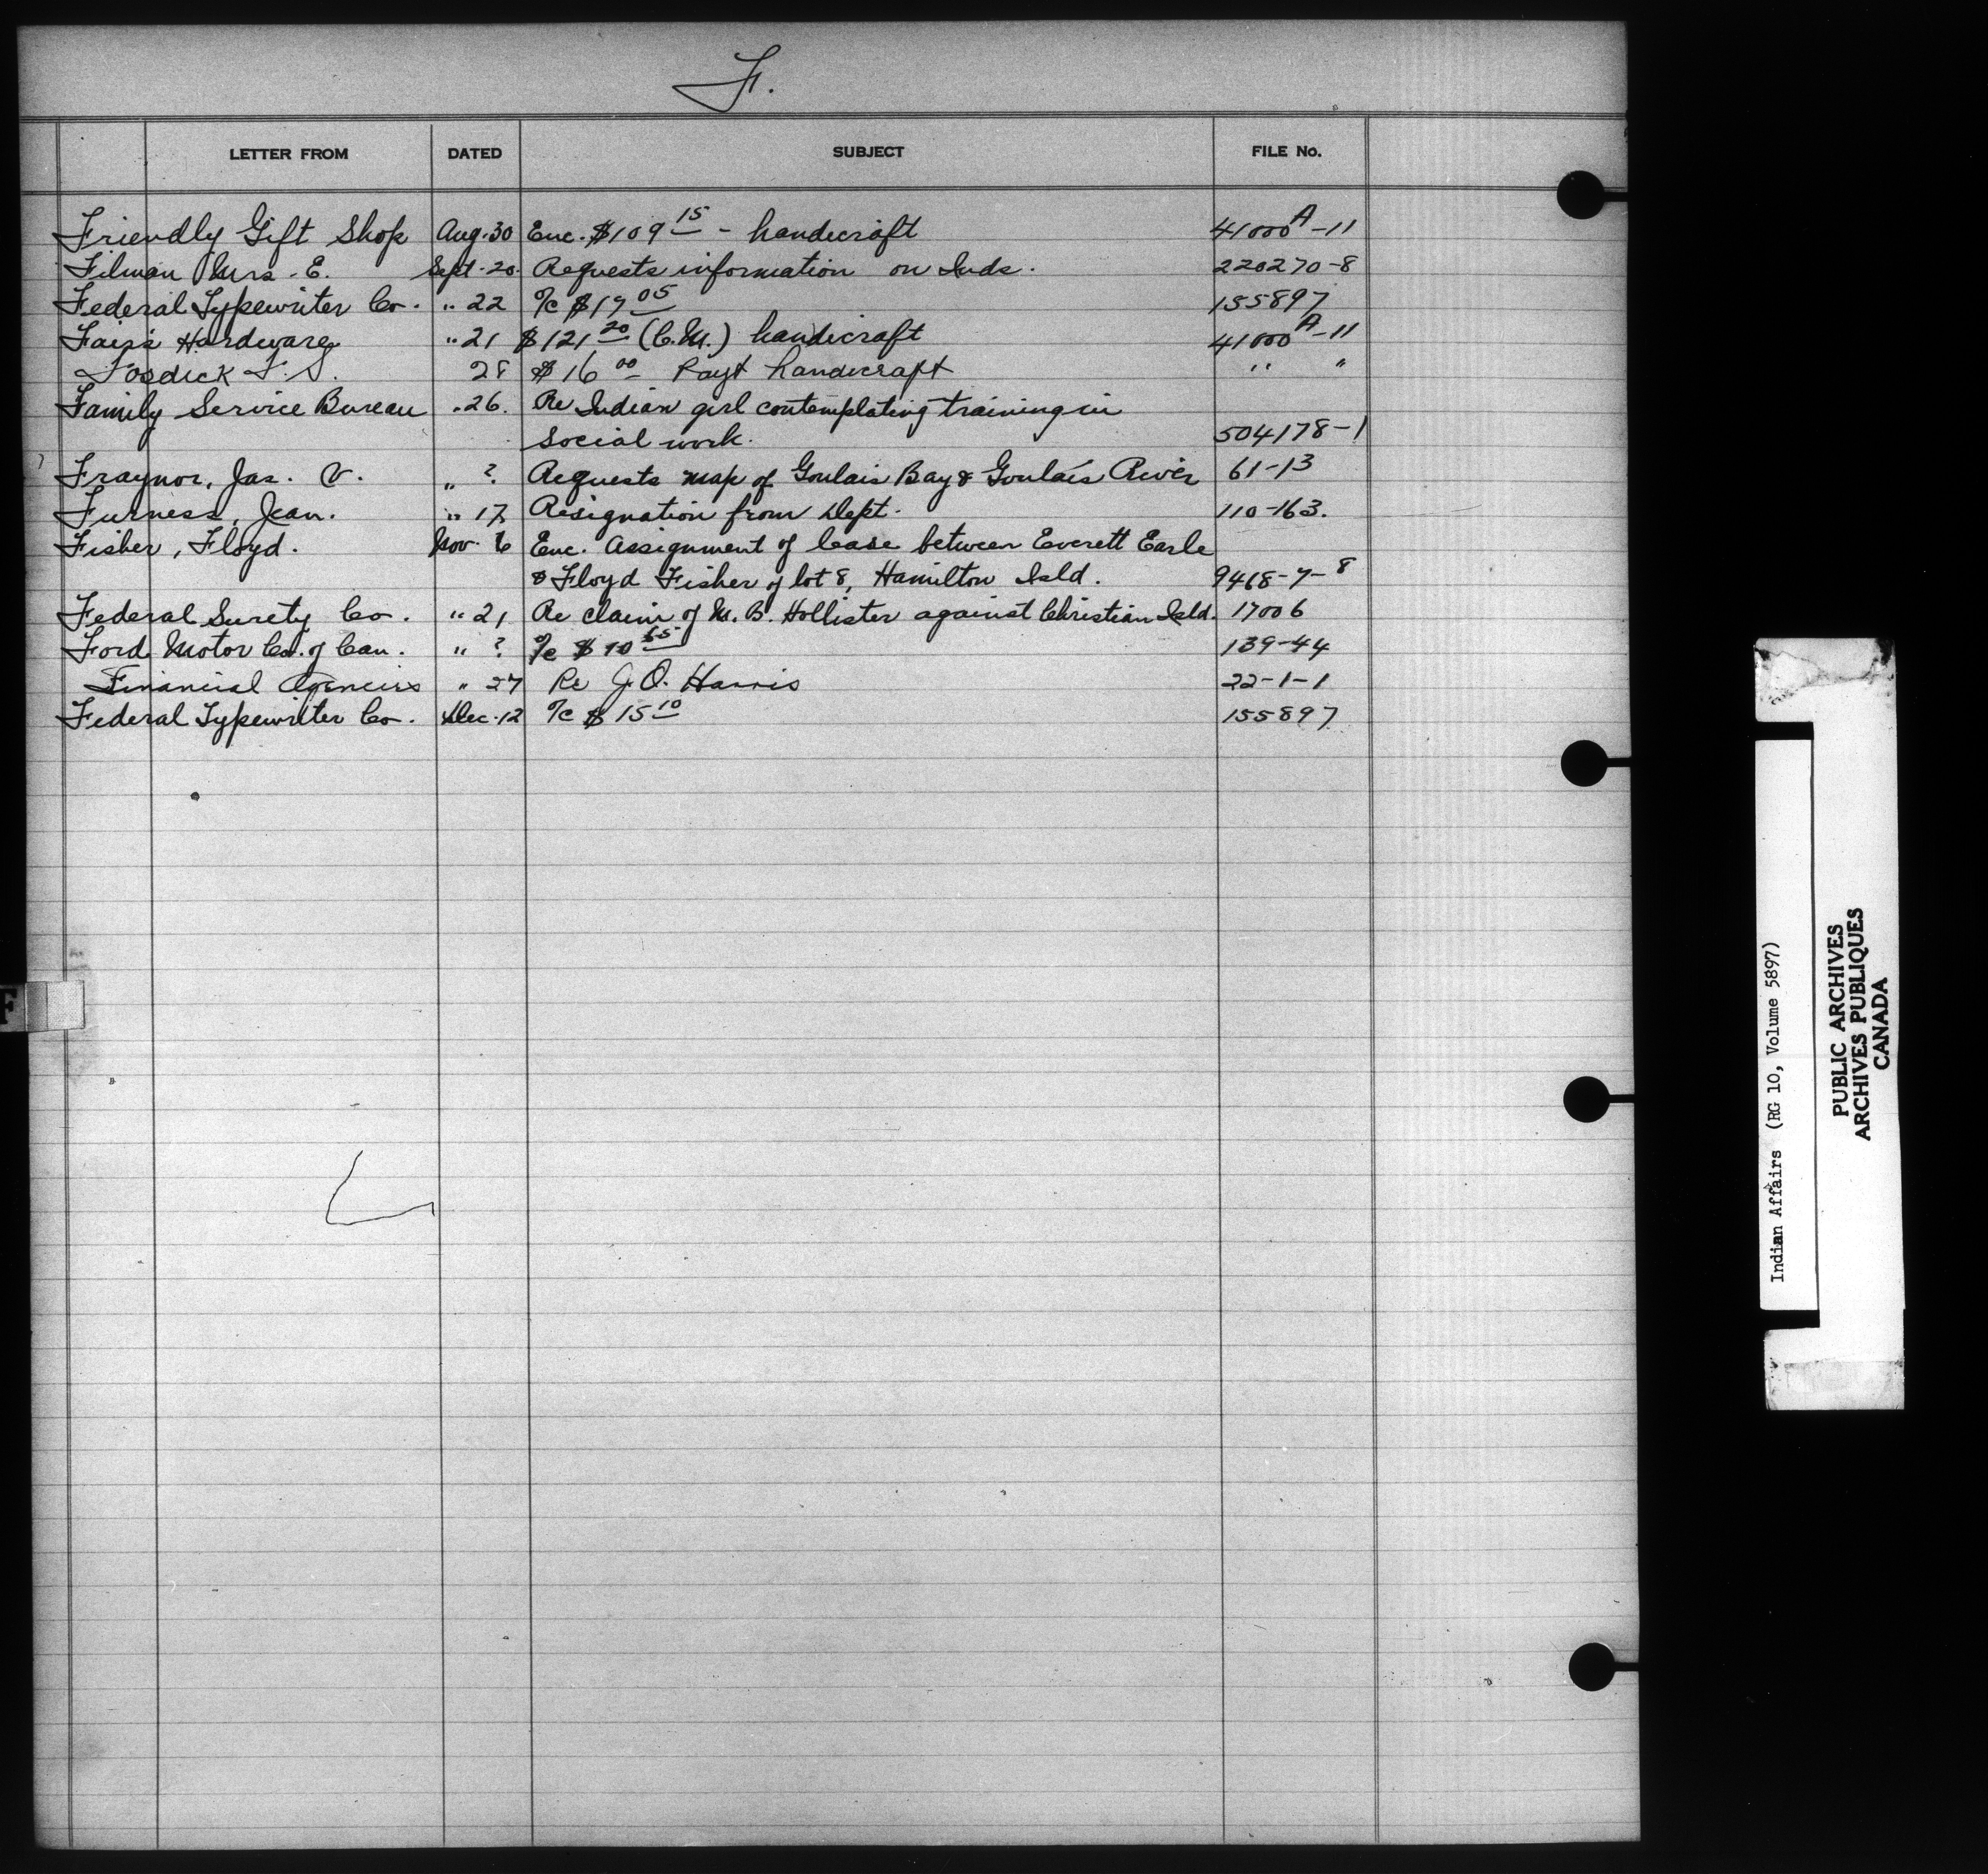 F.
LETTER FROM DATED SUBJECT FILE No.
Friendly Gift Shop Aug. 30 Enc. $109 15 - handicraft 41000 A-11
Filman Mrs. E. Sept. 20. Requests information on Inds. 220270-8
Federal Typewriter Co. " 22 a/c $19 05 155897
Fair's Hardware " 21 $121 20 (C.M.) handicraft 41000 A-11
Fosdick F. S. 28 $16 00 Payt handicraft " "
Family Service Bureau " 26. Re Indian girl contemplating training in
social work. 504178-1
Fraynor, Jas. V. " ? Requests map of Goulais Bay & Goulais River 61-13
Furness, Jean. " 17 Resignation from Dept. 110-163.
Fisher, Floyd. Nov. 6 Enc. Assignment of lease between Everett Earle
& Floyd Fisher of lot 8, Hamilton Isld. 9468-7-8
Federal Surety Co. " 21 Re claim of M. B. Hollister against Christian Isld. 17006
Ford Motor Co. of Can. " ? a/c $10 65 139-44
Financial Agencies " 27 Re J. O. Harris 22-1-1
Federal Typewriter Co. Dec. 12 a/c $15 10 155897
F
Indian Affairs (RG 10, Volume 5897)
PUBLIC ARCHIVES
ARCHIVES PUBLIQUES
CANADA